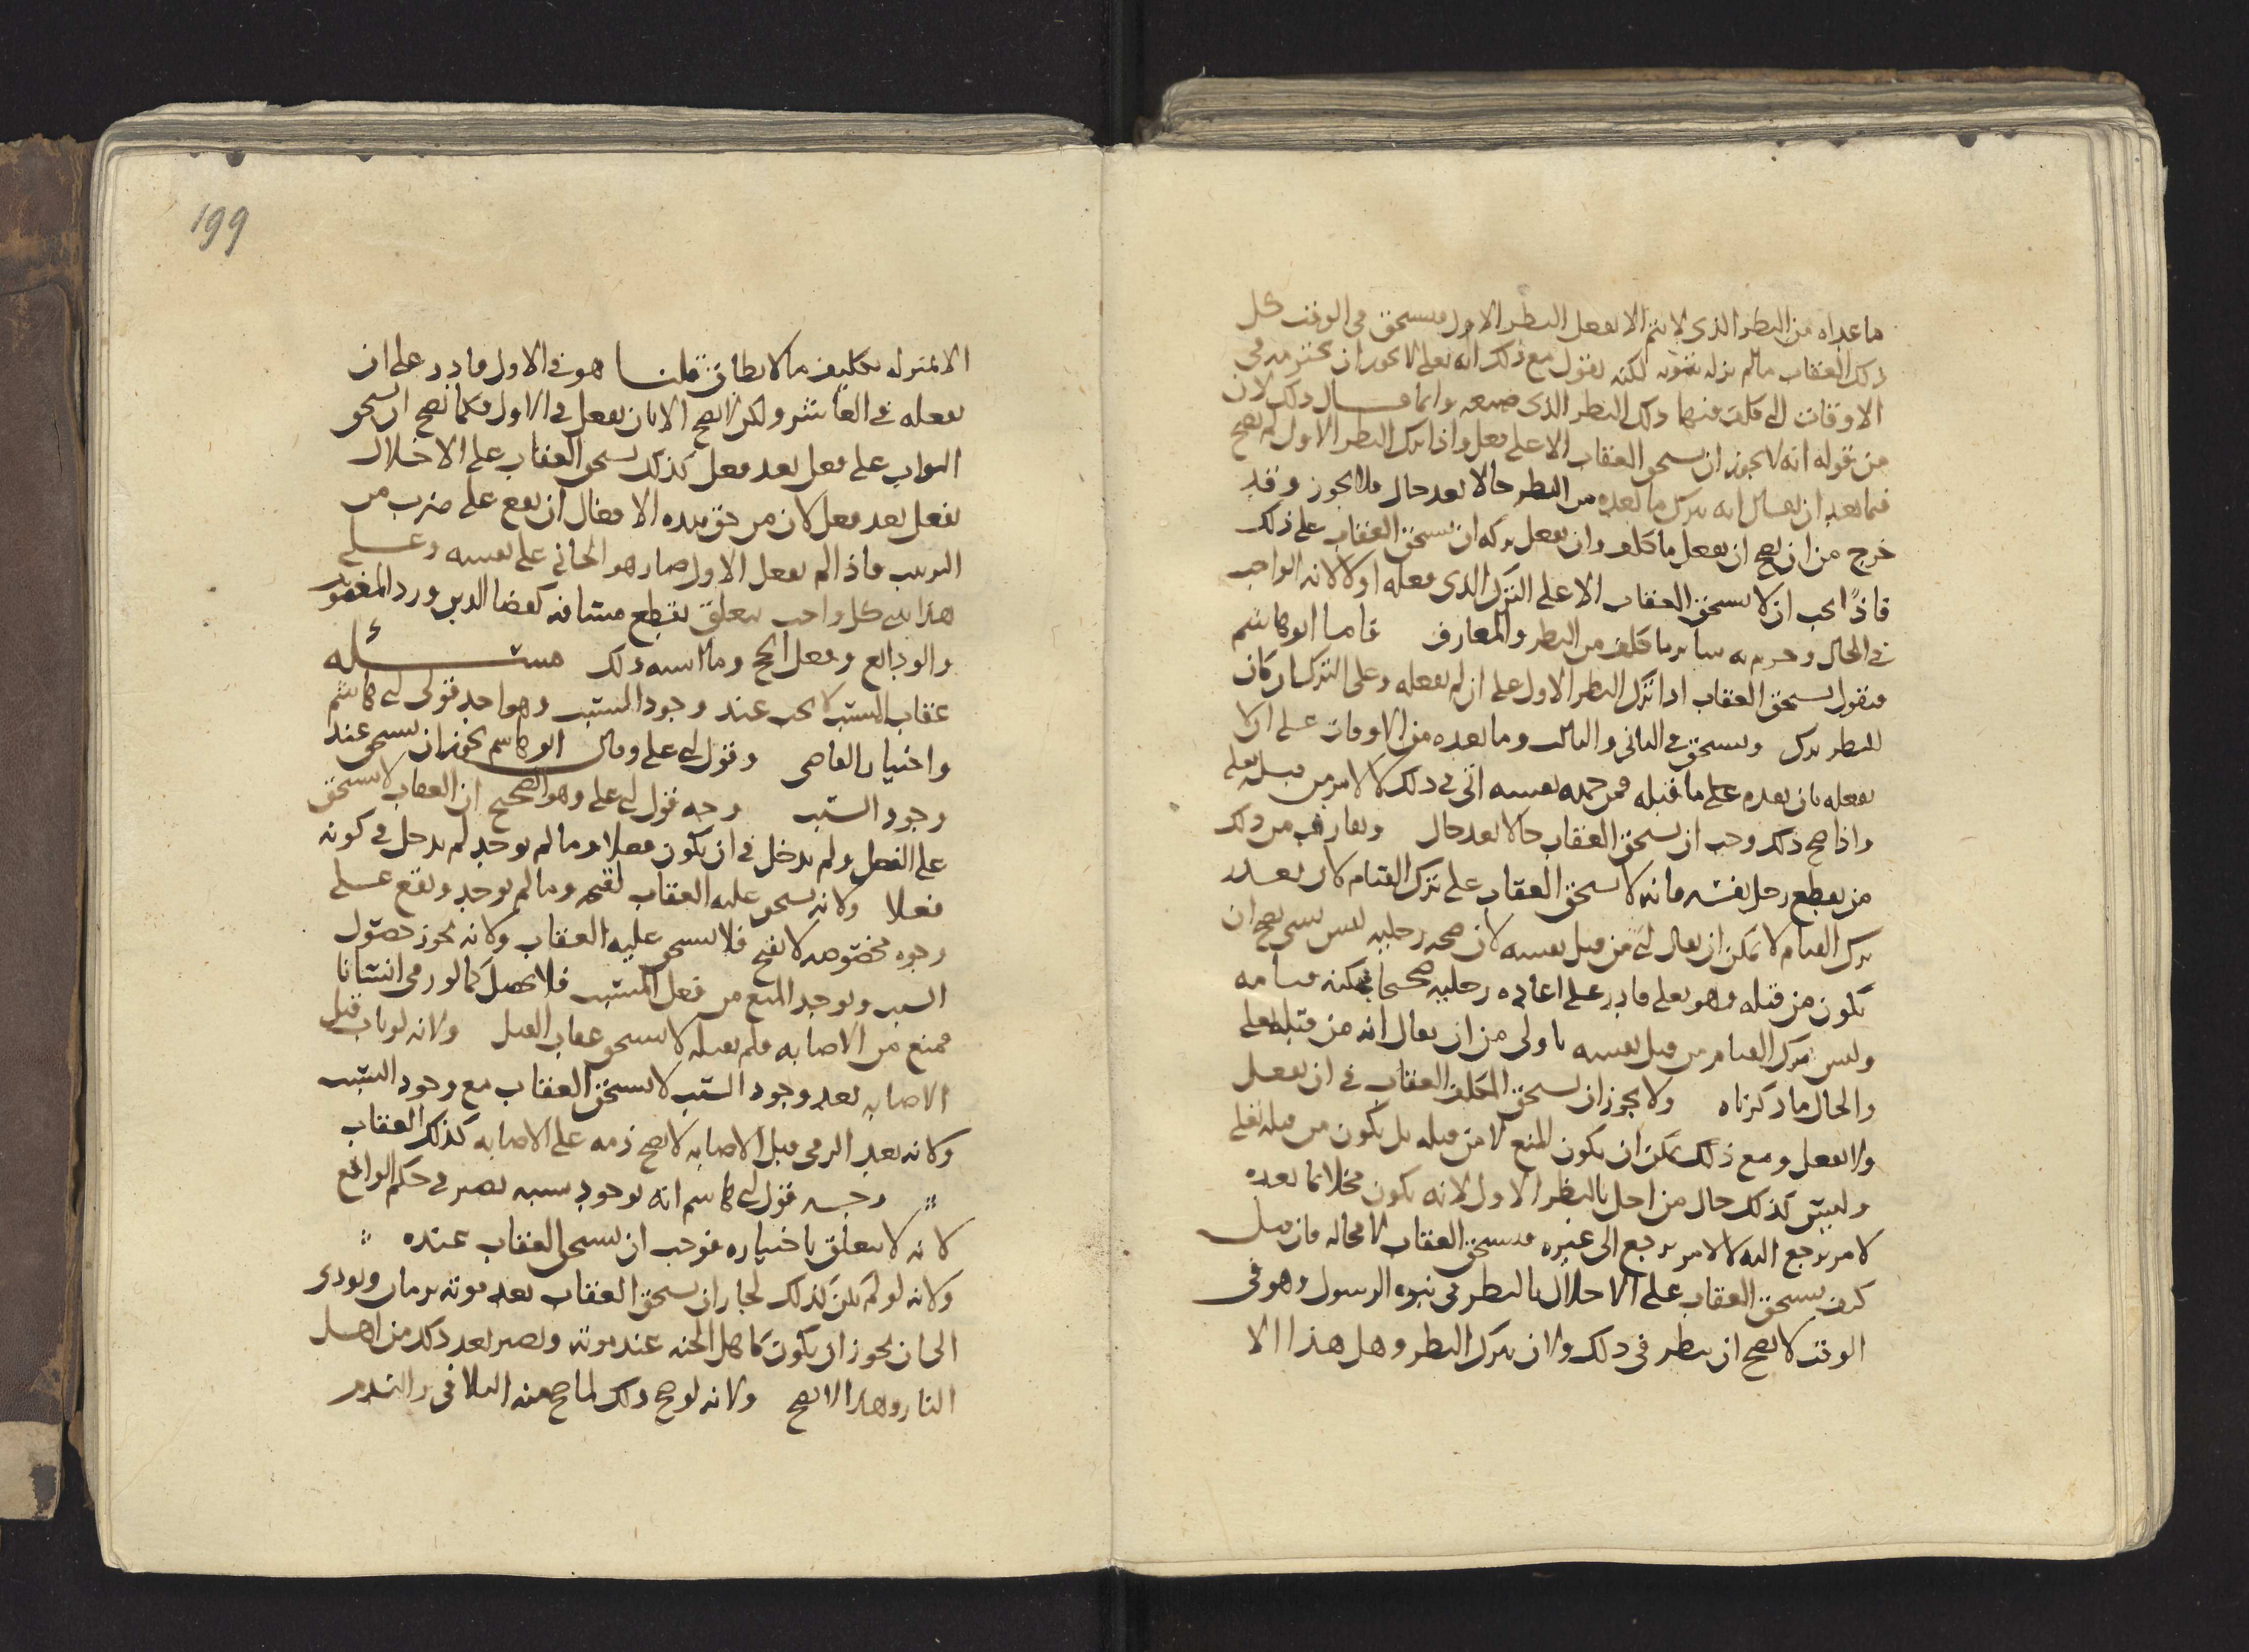 ما عداه من النظر الذى لا يتم الا بفعل النظر الاول فيستحق فى الوقت كل
ذلك العقاب ما لم يزله بتوبه لكنه يقول مع ذلك انه تعلى لا يجوز ان يخترمه فى
الاوقات التى كلف فيها ذلك النظر الذى ضيعه وانما قال ذلك لان
من قوله انه لا يجوز ان يستحق العقاب الا على فعل واذا ترك النظر الاول لم يصح
فيما بعد ان يقال انه يترك ما بعده من النظر حالا بعد حال فلا يجوز وقد
خرج من ان يصح ان يفعل ما كلف وان يفعل تركه ان يستحق العقاب على ذلك
فاذًا يجب ان لا يستحق العقاب الا على الترك الذى فعله اولا لانه الواجب
فى الحال وحرم به ساير ما كلف من النظر والمعارف فاما ابو هاشم
فيقول يستحق العقاب اذا ترك النظر الاول على ان لم يفعله وعلى الترك ان كان
للنظر ترك ويستحق فى الثانى والثالث وما بعده من الاوقات على ان لا
يفعله بان بعده على ما قبله فمن جهه نفسه اتى فى ذلك لا لامر من قبله تعلى
واذا صح ذلك وجب ان يستحق العقاب حالا بعد حال ويفارق من ذلك
من يقطع رجل نفسه فانه لا يستحق العقاب على ترك القيام لان بعد
ترك القيام لا يمكن ان يقال اتى من قبل نفسه لان صحه رجليه ليس بشى يصح ان
يكون من قبله وهو تعلى قادر على اعاده رجليه صحيحا فيمكنه قيامه
وليس ترك القيام من قبل نفسه باولى من ان يقال انه من قبله تعلى
والحال ما ذكرناه ولا يجوز ان يستحق المكلف العقاب فى ان يفعل
ولا يفعل ومع ذلك يمكن ان يكون المنع لا من قبله بل يكون من قبله تعلى
وليس كذلك حال من اخل بالنظر الاول لانه يكون مخلا بما بعده
لامر يرجع اليه لا لامر يرجع الى غيره فيستحق العقاب لا محاله فان قيل
كيف يستحق العقاب على الاخلال بالنظر فى نبوه الرسول وهو فى
الوقت لا يصح ان ينظر فى ذلك ولا ان يترك النظر وهل هذا الا
199
الا بمنزله تكليف ما لا يطاق قلنا هو فى الاول قادر على ان
يفعله فى العاشر ولكن لا يصح الا بان يفعل فى الاول فكما يصح ان يستحق
الثواب على فعل بعد فعل كذلك يستحق العقاب على الاخلال
بفعل بعد فعل لان من حق هذه الافعال ان يقع على ضرب من
الترتيب فاذا لم يفعل الاول صار هو الجانى على نفسه وعلى
هذا يبنى كل واجب يتعلق بقطع مسافه كقضا الدين ورد المغصوب
والودايع وفعل الحج وما اشبه ذلك مسئله
عقاب المسبب لا يجب عند وجود السبب وهو احد قولى ابى هاشم
واختيار القاضى وقول ابى على وقال ابو هاشم يجوز ان يستحق عند
وجود السبب وجه قول ابى على وهو الصحيح ان العقاب لا يستحق
على الفعل ولم يدخل فى ان يكون فعلا وما لم يوجد لم يدخل فى كونه
فعلا ولانه يستحق عليه العقاب لقبحه وما لم يوجد ويقع على
وجوه مخصوصه لا يقبح فلا يستحق عليه العقاب ولانه يجوز حصول
السبب ويوجد المنع من فعل المسبب فلا يحصل كما لو رمى انسانا
فمنع من الاصابه فلم يقتله لا يستحق عقاب القتل ولانه لو تاب قبل
الاصابه بعد وجود السبب لا يستحق العقاب مع وجود السبب
ولانه بعد الرمى قبل الاصابه لا يصح ذمه على الاصابه كذلك العقاب
وجه قول ابى هاشم انه بوجود سببه يصير فى حكم الواقع
لانه لا يتعلق باختياره فوجب ان يستحق العقاب عنده
ولانه لو لم يكن كذلك لجاز ان يستحق العقاب بعد موته بزمان ويودى
الى ان يجوز ان يكون كاهل الجنه عند موته ويصير بعد ذلك من اهل
النار وهذا لا يصح ولانه لو صح ذلك لما صح منه التلافى والندم